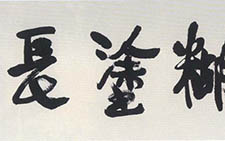 糊塗長